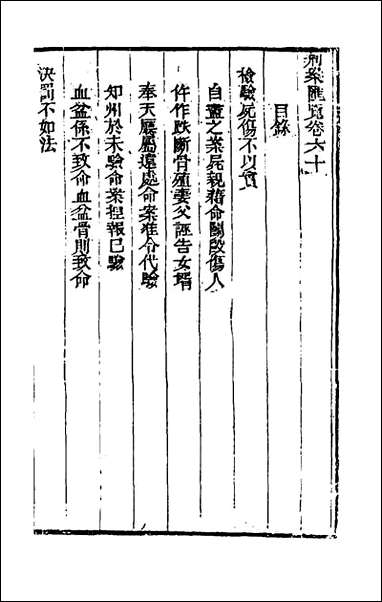 刑案匯覽卷六十
目錄
檢驗屍傷不以實
自盡之案屍親藉命鬧毆傷人
仵作跌斷骨殖妻父誣告女壻
奉天廳屬遠處命案准令代驗
知州於未驗命案捏報已驗
血盆係不致命血盆骨則致命
決罰不如法